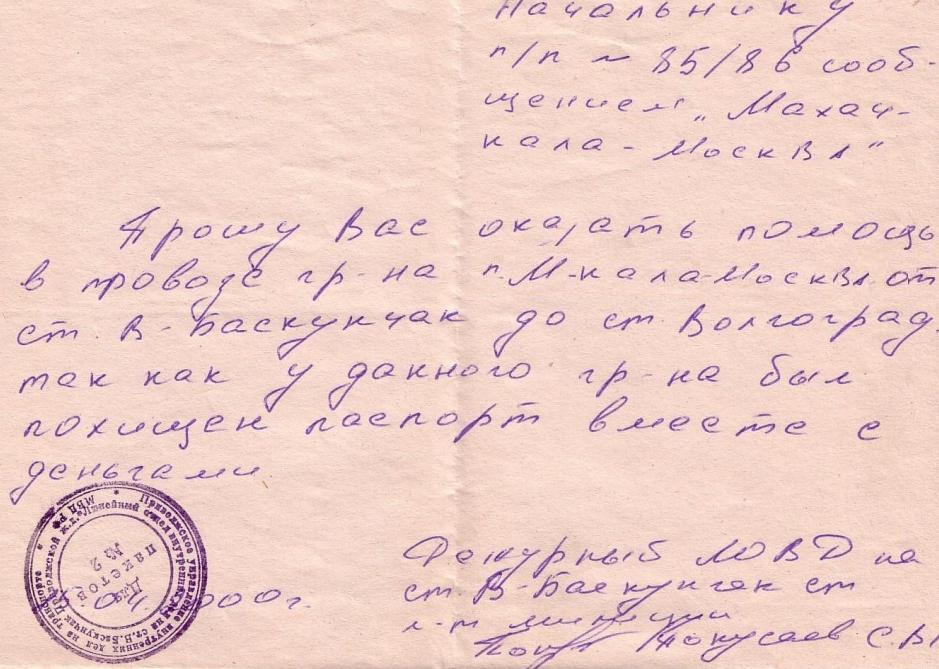 Начальнику
п/п № 85/86 сооб-
щением „Махач-
кала-Москва"
Прошу Вас оказать помощь
в провозе гр-на п. М-кала-Москва от
ст. В-Баскунчак до ст. Волгоград,
так как у данного гр-на был
похищен паспорт вместе с
деньгами.
Приволжское управление внутренних дел на транспорте
МВД РФ
Линейный отдел внутренних дел на ст. В.Баскунчак Приволжской ж.д.
Для
пакетов
№ 2
04 2000г.
Дежурный ЛОВД на
ст. В-Баскунчак ст
л-т милиции
С.В.